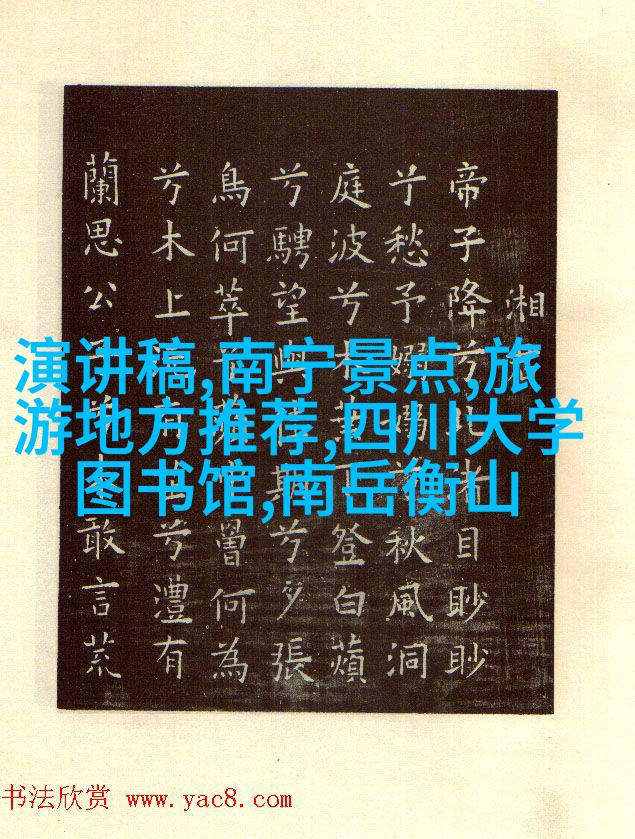 湘
帝子降兮北渚目眇眇
兮愁予嫋嫋兮秋風洞
庭波兮木葉下登白蘋
兮騁望與佳期兮夕張
鳥何萃兮罾何為
兮木上沅有芷兮澧有
蘭思公子兮未敢言荒
演讲稿,南宁景点,旅
游地方推荐,四川大学
图书馆,南岳衡山
书法欣赏 www.yac8.com